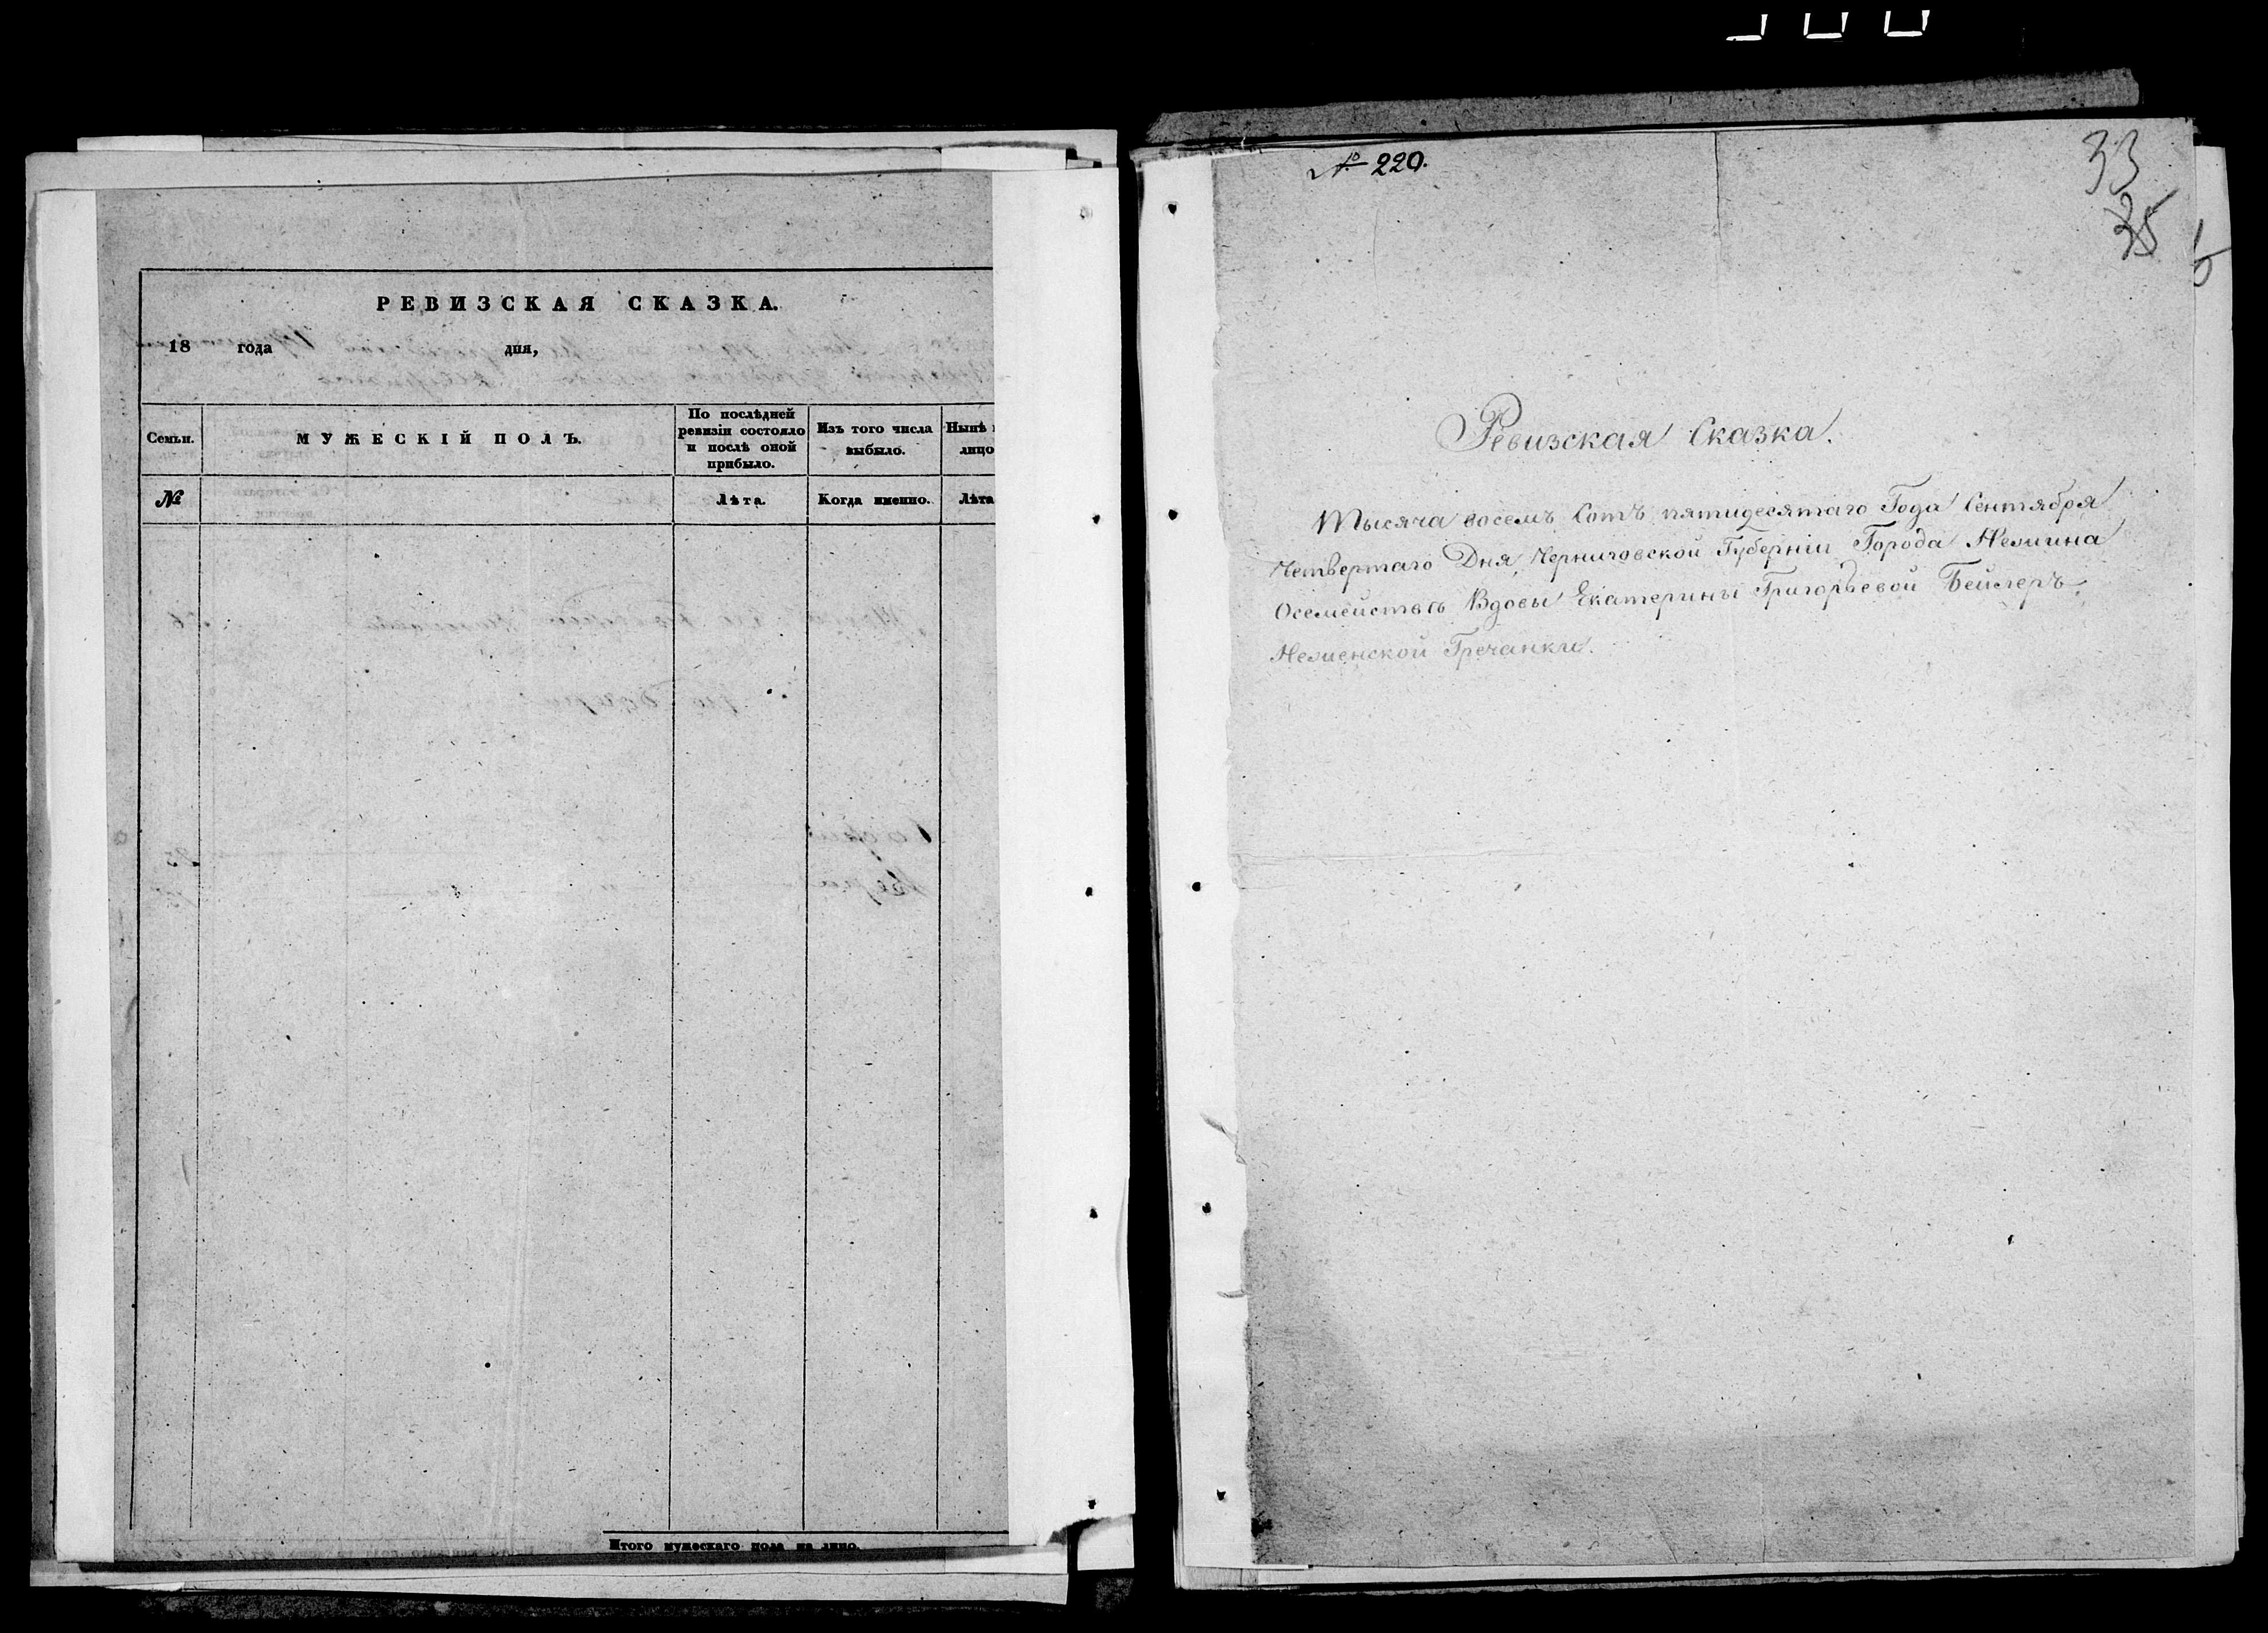 РЕВИЗСКАЯ СКАЗКА.
18 года дня,
Семьи.
МУЖЕСКІЙ ПОЛЪ.
По послѣдней
ревизіи состояло
и послѣ оной
прибыло.
Изъ того числа
выбыло.
Нынѣ
лицо
№
Лѣта.
Когда именно.
Лѣта
Итого мужескаго пола на лицо.
№ 220.
33
35
Ревизская Сказка.
Тысяча восемь Сотъ пятидесятаго Года Сентября
Четвертаго Дня, Черниговской Губерніи Города Нежина
Осемействѣ Вдовы Екатерины Григорьевой Бейлеръ,
Неженской Гречанки.